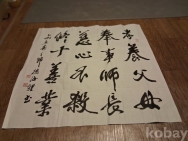 孝養父母
奉事師長
慈心不殺
修十善業
kobay